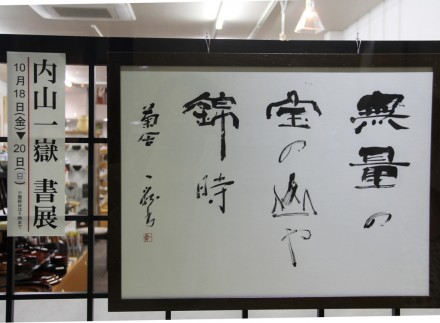 内山一嶽 書展
10月18日(金)▼20日(日)
無量の
宝の山や
錦時
菊舎